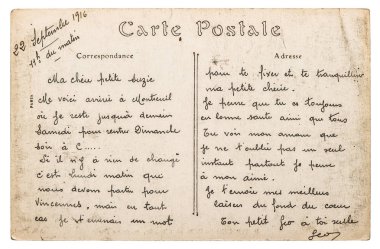 22 Septembre 1916
11h du matin
Carte Postale
Correspondance
Adresse
PARIS
Ma chère petite Suzie
Me voici arrivé à Montreuil
où je reste jusqu'à demain
Samedi pour rentrer Dimanche
soir à C.....
Si il n'y a rien de changé
c'est lundi matin que
nous devons partir pour
Vincennes, mais en tout
cas je t'enverrais un mot
pour te fixer et te tranquilliser
ma petite chérie.
Je pense que tu es toujours
en bonne santé ainsi que tous
Tu vois mon amour que
je ne t'oublie pas un seul
instant partout je pense
à mon aimée.
Je t'envoie mes meilleurs
baisers du fond du cœur
Ton petit Geo à toi seule
Geo